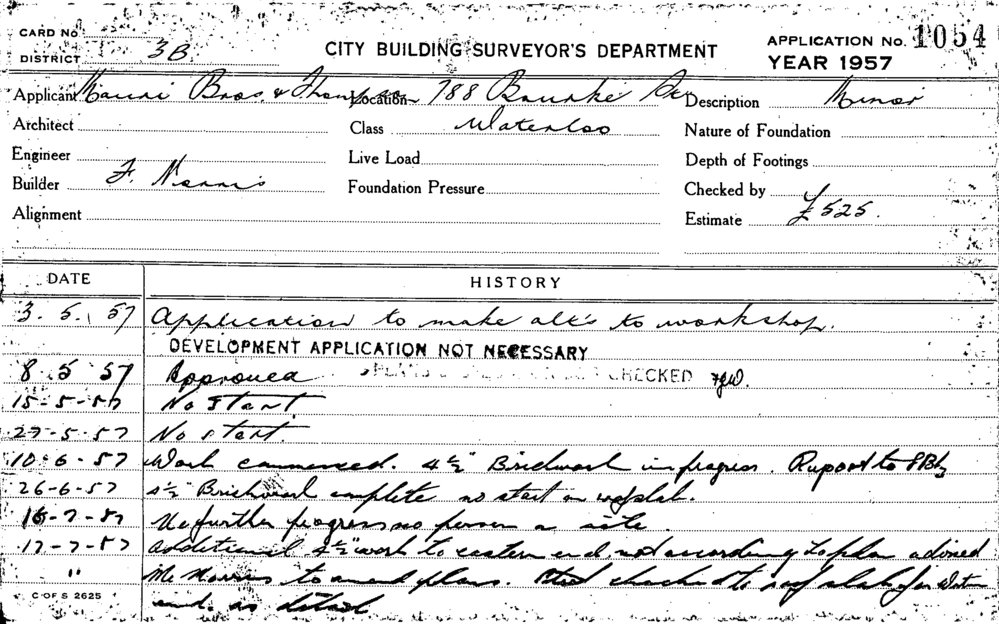 CARD No.
DISTRICT 3B
CITY BUILDING SURVEYOR'S DEPARTMENT
APPLICATION No. 1054
YEAR 1957
Applicant Mauri Bros. & Thompson Location 788 Bourke Description Minor
Architect Class Waterloo Nature of Foundation
Engineer Live Load Depth of Footings
Builder F. Norris Foundation Pressure Checked by
Alignment Estimate £525.
DATE HISTORY
3. 5. 57 Application to make alt's to workshop.
DEVELOPMENT APPLICATION NOT NECESSARY
8 5 57 Approved CHECKED
15-5-57 No Start
27-5-57 No start.
10-6-57 Work commenced. 4½" Brickwork in progress. Report to
26-6-57 4½" Brickwork complete no start on slab.
16-7-57 No further progress no person on site.
17-7-57 Additional 4½" work to eastern end not according to plan advised
" Mr Norris to amend plans. Steel checked to roof slab for
end. as detail
C OF S 2625